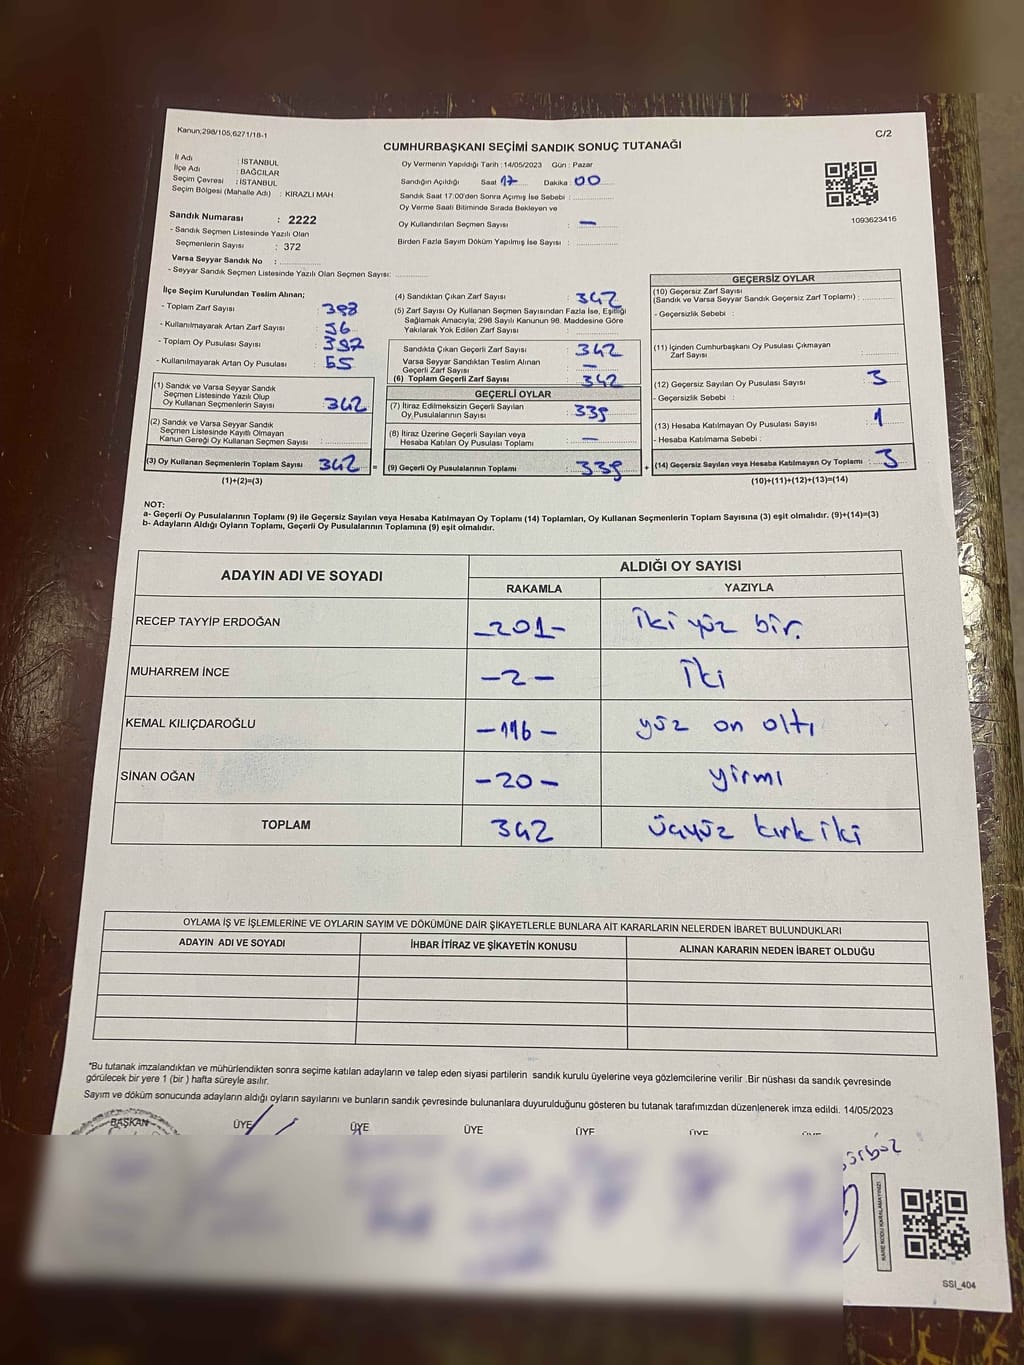 Kanun;298/105,6271/18-1
C/2
CUMHURBAŞKANI SEÇİMİ SANDIK SONUÇ TUTANAĞI
İl Adı : İSTANBUL
İlçe Adı : BAĞCILAR
Seçim Çevresi : İSTANBUL
Seçim Bölgesi (Mahalle Adı) : KİRAZLI MAH.
Sandık Numarası : 2222
- Sandık Seçmen Listesinde Yazılı Olan
Seçmenlerin Sayısı : 372
Varsa Seyyar Sandık No :
- Seyyar Sandık Seçmen Listesinde Yazılı Olan Seçmen Sayısı:
Oy Vermenin Yapıldığı Tarih : 14/05/2023 Gün : Pazar
Sandığın Açıldığı Saat 17 Dakika : 00
Sandık Saat 17:00'den Sonra Açımış İse Sebebi :
Oy Verme Saati Bitiminde Sırada Bekleyen ve
Oy Kullandırılan Seçmen Sayısı : —
Birden Fazla Sayım Döküm Yapılmış İse Sayısı :
1093623416
İlçe Seçim Kurulundan Teslim Alınan;
- Toplam Zarf Sayısı : 398
- Kullanılmayarak Artan Zarf Sayısı : 56
- Toplam Oy Pusulası Sayısı : 397
- Kullanılmayarak Artan Oy Pusulası : 55
(1) Sandık ve Varsa Seyyar Sandık
Seçmen Listesinde Yazılı Olup
Oy Kullanan Seçmenlerin Sayısı : 342
(2) Sandık ve Varsa Seyyar Sandık
Seçmen Listesinde Kayıtlı Olmayan
Kanun Gereği Oy Kullanan Seçmen Sayısı :
(3) Oy Kullanan Seçmenlerin Toplam Sayısı 342 =
(1)+(2)=(3)
(4) Sandıktan Çıkan Zarf Sayısı : 342
(5) Zarf Sayısı Oy Kullanan Seçmen Sayısından Fazla İse, Eşitliği
Sağlamak Amacıyla, 298 Sayılı Kanunun 98. Maddesine Göre
Yakılarak Yok Edilen Zarf Sayısı :
Sandıkta Çıkan Geçerli Zarf Sayısı : 342
Varsa Seyyar Sandıktan Teslim Alınan
Geçerli Zarf Sayısı : —
(6) Toplam Geçerli Zarf Sayısı : 342
GEÇERLİ OYLAR
(7) İtiraz Edilmeksizin Geçerli Sayılan
Oy Pusulalarının Sayısı : 339
(8) İtiraz Üzerine Geçerli Sayılan veya
Hesaba Katılan Oy Pusulası Toplamı : —
(9) Geçerli Oy Pusulalarının Toplamı : 339 +
GEÇERSİZ OYLAR
(10) Geçersiz Zarf Sayısı
(Sandık ve Varsa Seyyar Sandık Geçersiz Zarf Toplamı) :
- Geçersizlik Sebebi :
(11) İçinden Cumhurbaşkanı Oy Pusulası Çıkmayan
Zarf Sayısı :
(12) Geçersiz Sayılan Oy Pusulası Sayısı : 3
- Geçersizlik Sebebi :
(13) Hesaba Katılmayan Oy Pusulası Sayısı : 1
- Hesaba Katılmama Sebebi :
(14) Geçersiz Sayılan veya Hesaba Katılmayan Oy Toplamı : 3
(10)+(11)+(12)+(13)=(14)
NOT:
a- Geçerli Oy Pusulalarının Toplamı (9) ile Geçersiz Sayılan veya Hesaba Katılmayan Oy Toplamı (14) Toplamları, Oy Kullanan Seçmenlerin Toplam Sayısına (3) eşit olmalıdır. (9)+(14)=(3)
b- Adayların Aldığı Oyların Toplamı, Geçerli Oy Pusulalarının Toplamına (9) eşit olmalıdır.
ADAYIN ADI VE SOYADI
ALDIĞI OY SAYISI
RAKAMLA YAZIYLA
RECEP TAYYİP ERDOĞAN -201- iki yüz bir.
MUHARREM İNCE -2- İki
KEMAL KILIÇDAROĞLU -116- yüz on altı
SİNAN OĞAN -20- yirmi
TOPLAM 342 üçyüz kırk iki
OYLAMA İŞ VE İŞLEMLERİNE VE OYLARIN SAYIM VE DÖKÜMÜNE DAİR ŞİKAYETLERLE BUNLARA AİT KARARLARIN NELERDEN İBARET BULUNDUKLARI
ADAYIN ADI VE SOYADI İHBAR İTİRAZ VE ŞİKAYETİN KONUSU ALINAN KARARIN NEDEN İBARET OLDUĞU
*Bu tutanak imzalandıktan ve mühürlendikten sonra seçime katılan adayların ve talep eden siyasi partilerin sandık kurulu üyelerine veya gözlemcilerine verilir .Bir nüshası da sandık çevresinde
görülecek bir yere 1 (bir ) hafta süreyle asılır.
Sayım ve döküm sonucunda adayların aldığı oyların sayılarını ve bunların sandık çevresinde bulunanlara duyurulduğunu gösteren bu tutanak tarafımızdan düzenlenerek imza edildi. 14/05/2023
BAŞKAN ÜYE ÜYE ÜYE ÜYE ÜYE
KARE KODU KARALAMAYINIZ!
SSI_404